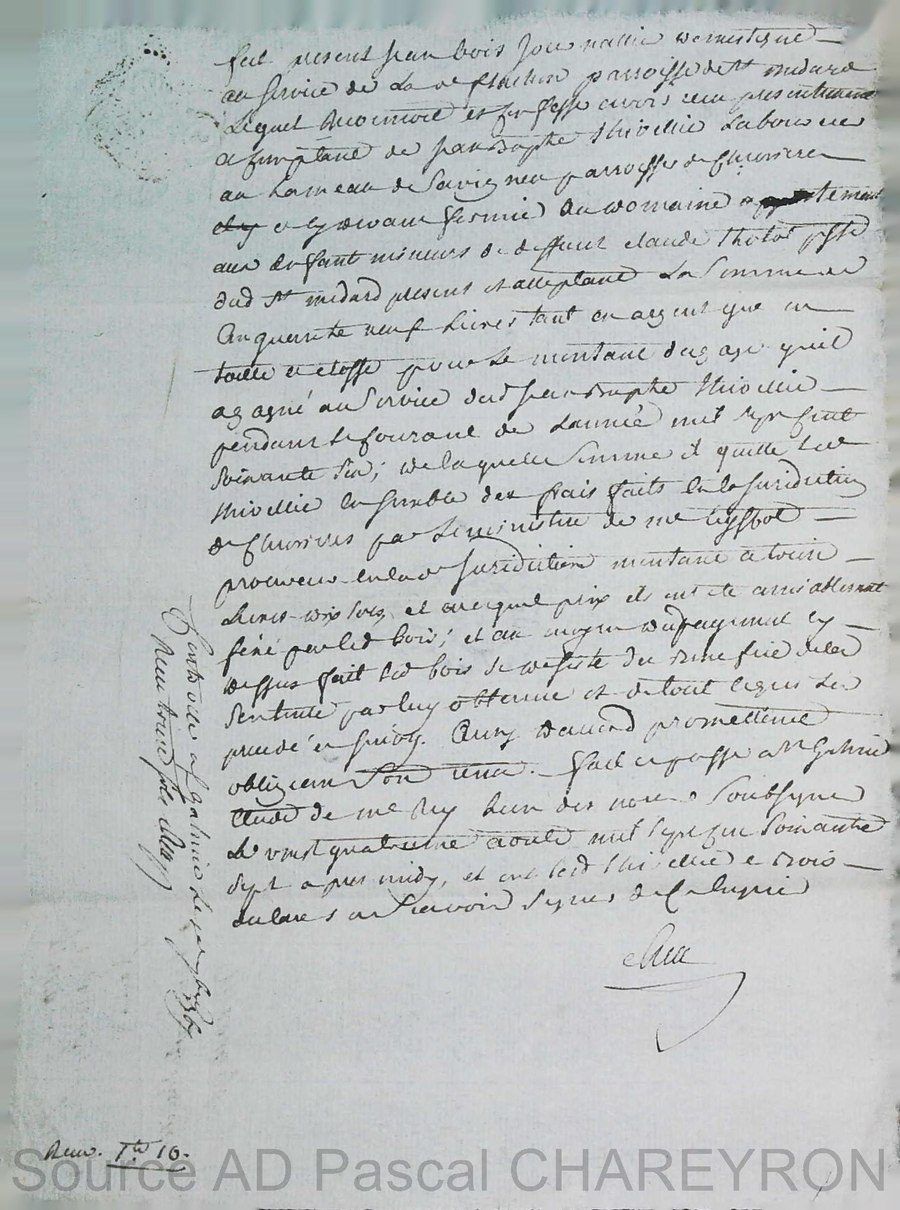 fut present jean bois jou nallie domestique
au service de La ve paroisse de st midard
Lequel et confesse avoir receu presentement
a comptant de jean baptte thivellie Laboureur
au hameau de Savigneu parroisse de
et cy devant fermie du domaine tement
aux enfant mineurs de deffunt claude psse
dud st midard present et acceptant La Somme de
Cinquente neuf Livres tant en argent que en
toille et etoffe pour Le montant du gage quil
a gagné au Service dud jean baptte thivellie
pendant Le Courant de Lannée mil sept Cent
Soixante six; de laquelle Somme il quitte Led
thivellie Ensemble des frais faits en la Juridiction
de par Le ministere de me
procureur en lad Juridiction montant a
Livres dix sols, et auquel prix ils ont ete amiablement
par led bois; et au moyen du payement cy
dessus fait Led bois se desiste du benefice de la
Sentence par luy obtenue et de tout ce qui Les
precedé et suivy. Ainsy promettant
obligeant fait et passé a st Galmie
Etude de me Rey Lun des nores Soubsigné
Le vingt quatrieme aoust mil sept Cent Soixante
Sept apres midy, et ont Led thivellie et bois
declarés ne Scavoir Signer de Ce Enquis
Rey
Controllé a st galmie Le
Receu treize sols Rey
Receu. 10.
Source AD Pascal CHAREYRON